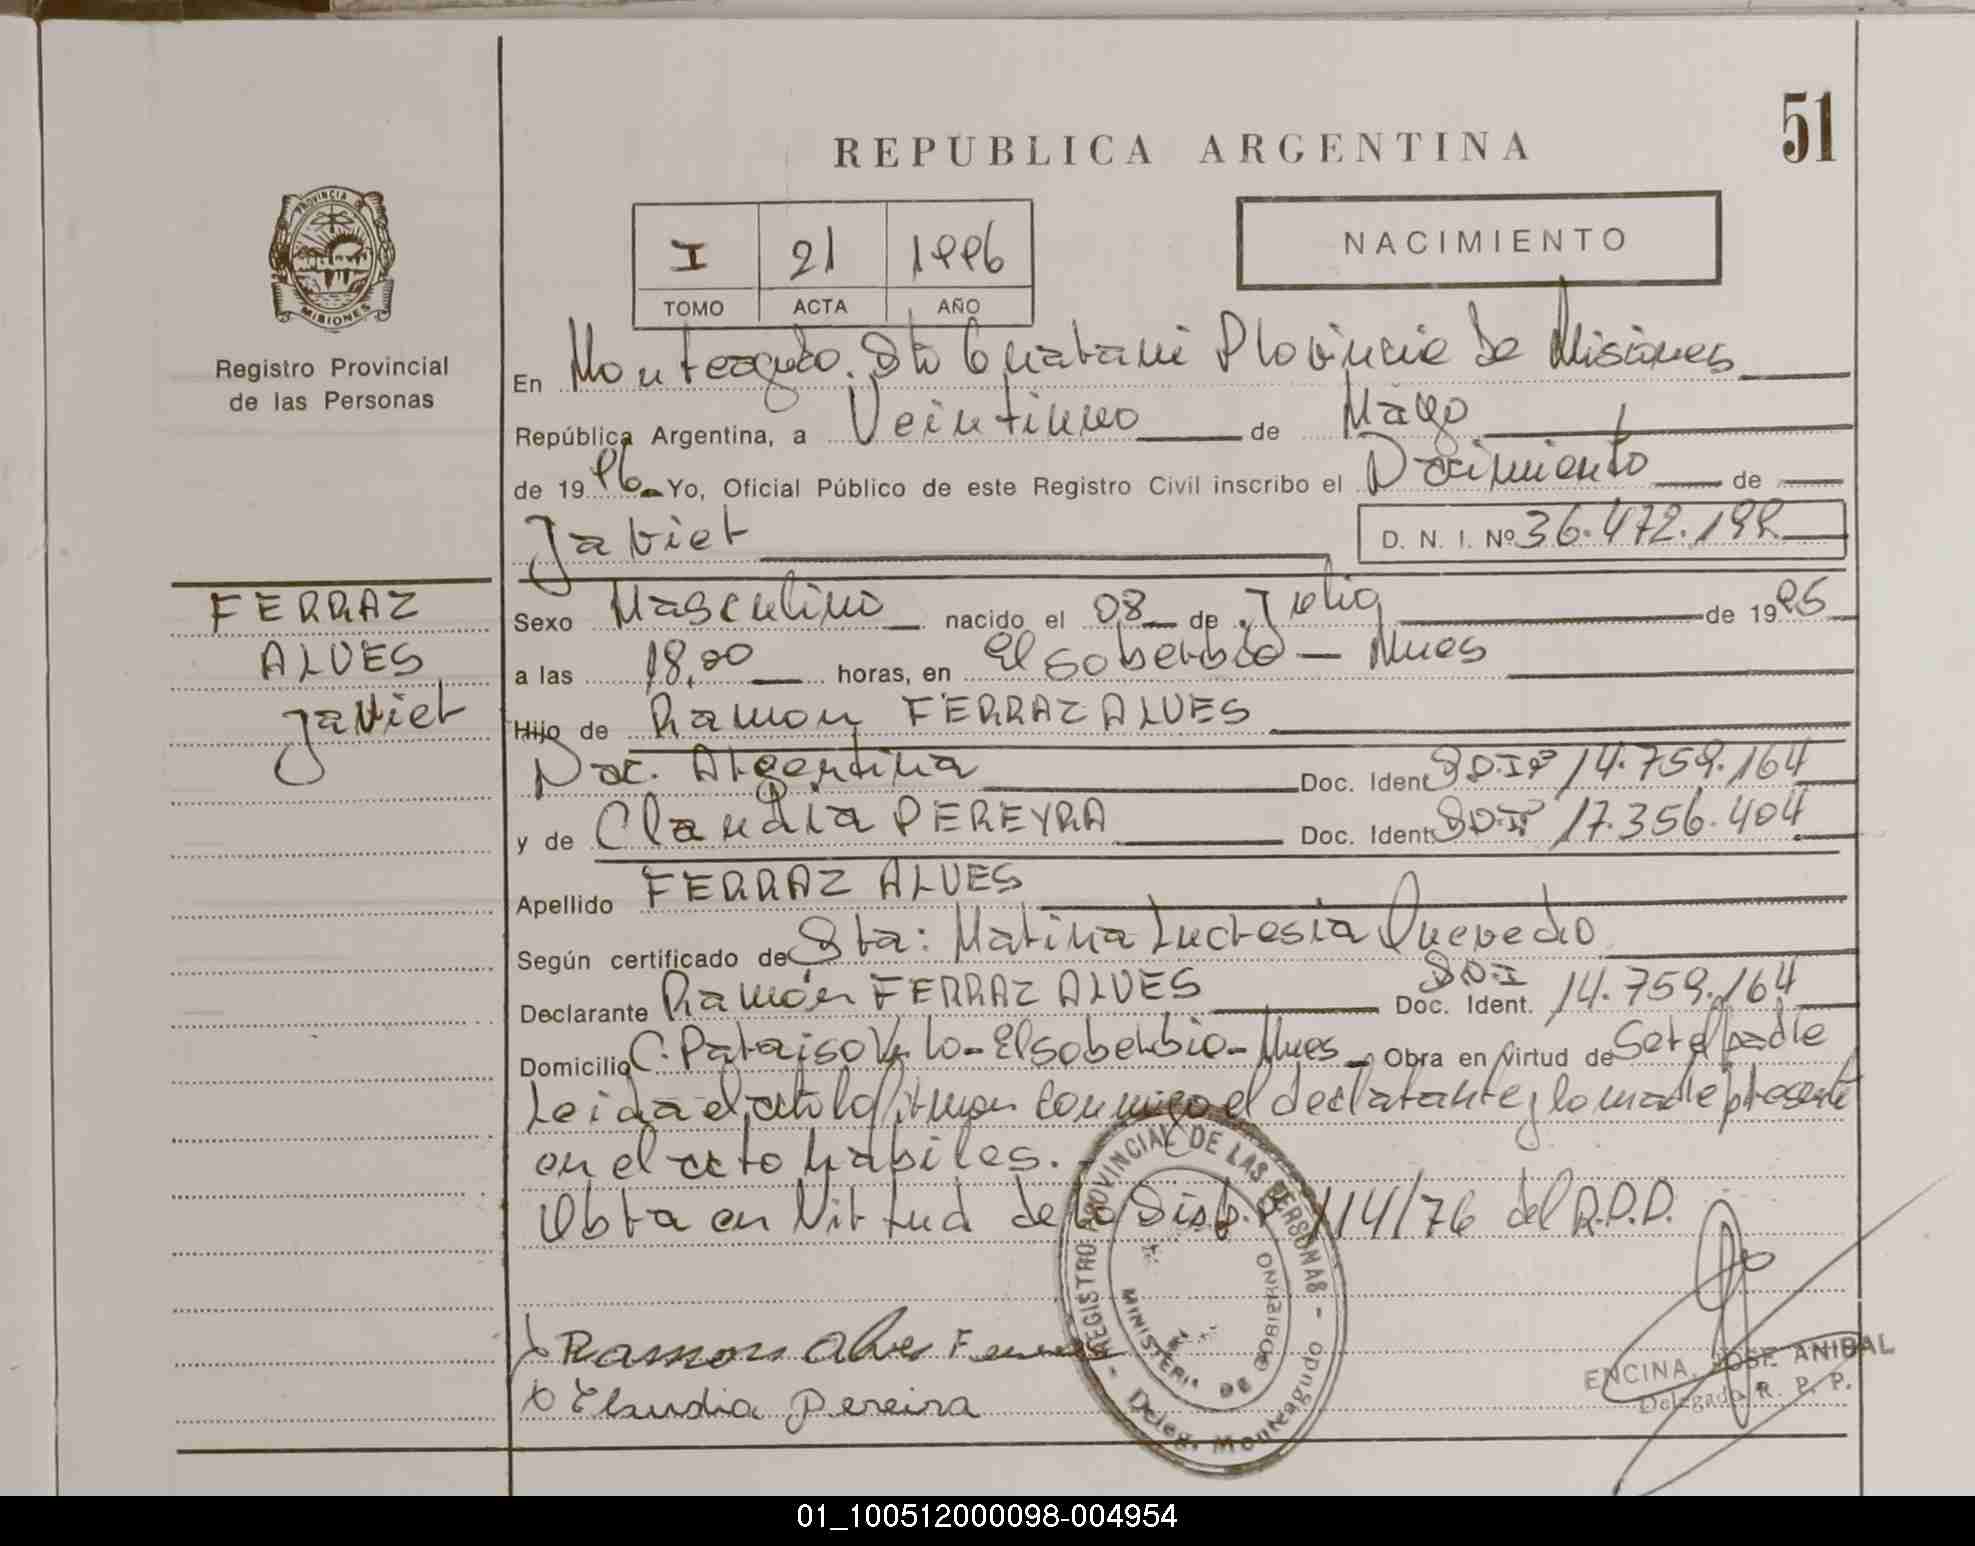 51
REPUBLICA ARGENTINA
PROVINCIA DE
MISIONES
Registro Provincial
de las Personas
I 21 1996
TOMO ACTA AÑO
NACIMIENTO
En Monteagudo. Dto Guarani Provincia de Misiones
República Argentina, a Veintiuno de Mayo
de 1996 Yo, Oficial Público de este Registro Civil inscribo el Nacimiento de
Javier
D. N. I. Nº 36.472.199
FERRAZ
ALVES
Javier
Sexo Masculino nacido el 08 de Julio de 1995
a las 18,00 horas, en El soberbio - Mnes
Hijo de Ramon FERRAZ ALVES
Nac. Argentina Doc. Ident 14.759.164
y de Claudia PEREYRA Doc. Ident 17.356.404
Apellido FERRAZ ALVES
Según certificado de Sta: Marina Lucresia Quevedo
Declarante Ramón FERRAZ ALVES Doc. Ident. DNI 14.759.164
Domicilio C. Paraiso - El soberbio - Mnes Obra en virtud de Ser el padre
Leida el acta la firman conmigo el declarante y la madre presente
en el acto habiles.
Obra en Virtud de la Disp. 114/76 del R.P.P.
REGISTRO PROVINCIAL DE LAS PERSONAS
MINISTERIO DE GOBIERNO
Deleg. Monteagudo
Ramon Alves
Claudia Pereira
ENCINA, JOSE ANIBAL
Delegado R. P. P.
01_100512000098-004954